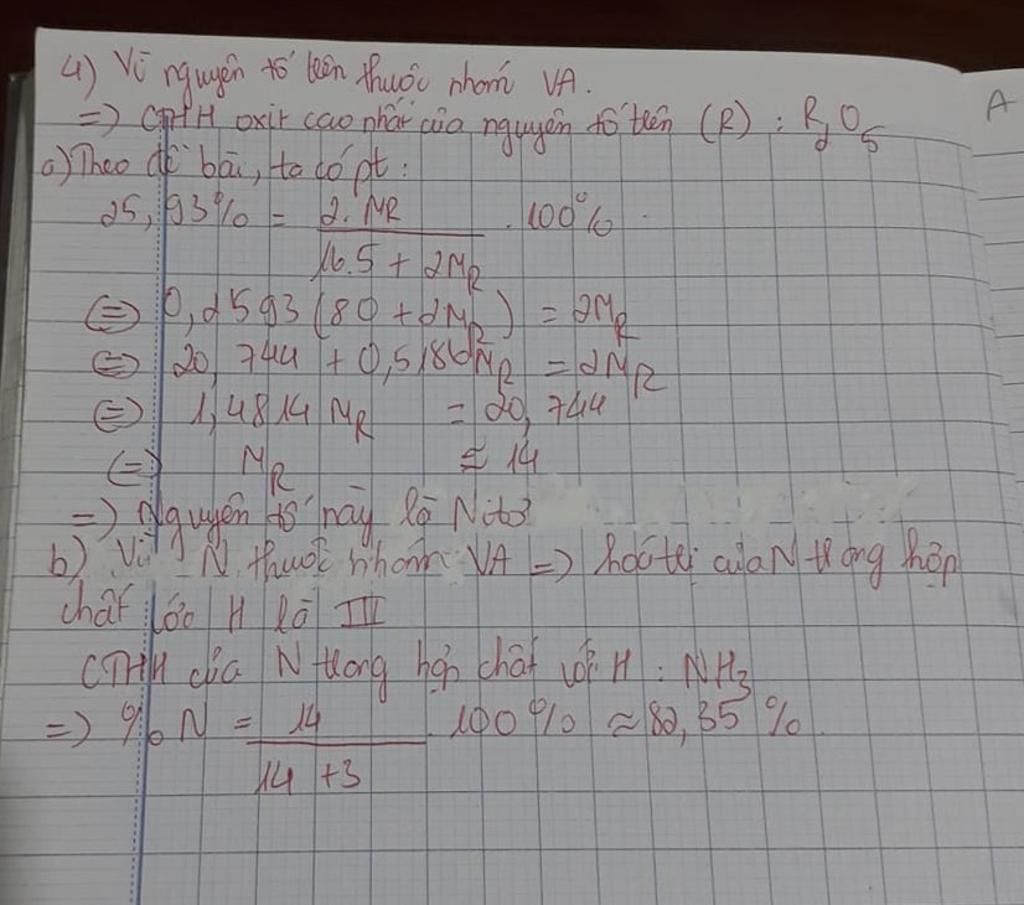 4) Vì nguyên tố trên thuộc nhóm VA.
=) CTHH oxit cao nhất của nguyên tố trên (R) : R₂O₅
A
a) Theo đề bài, ta có pt :
25,93% = 2.MR / 16.5 + 2MR . 100%
(=) 0,2593 (80 + 2MR) = 2MR
(=) 20,744 + 0,5186MR = 2MR
(=) 1,4814 MR = 20,744
(=) MR ≈ 14
=) Nguyên tố này là Nitơ
b) Vì N thuộc nhóm VA =) hoá trị của N trong hợp
chất với H là III
CTHH của N trong hợp chất với H : NH₃
=) % N = 14 / 14 + 3 . 100% ≈ 82,35 %